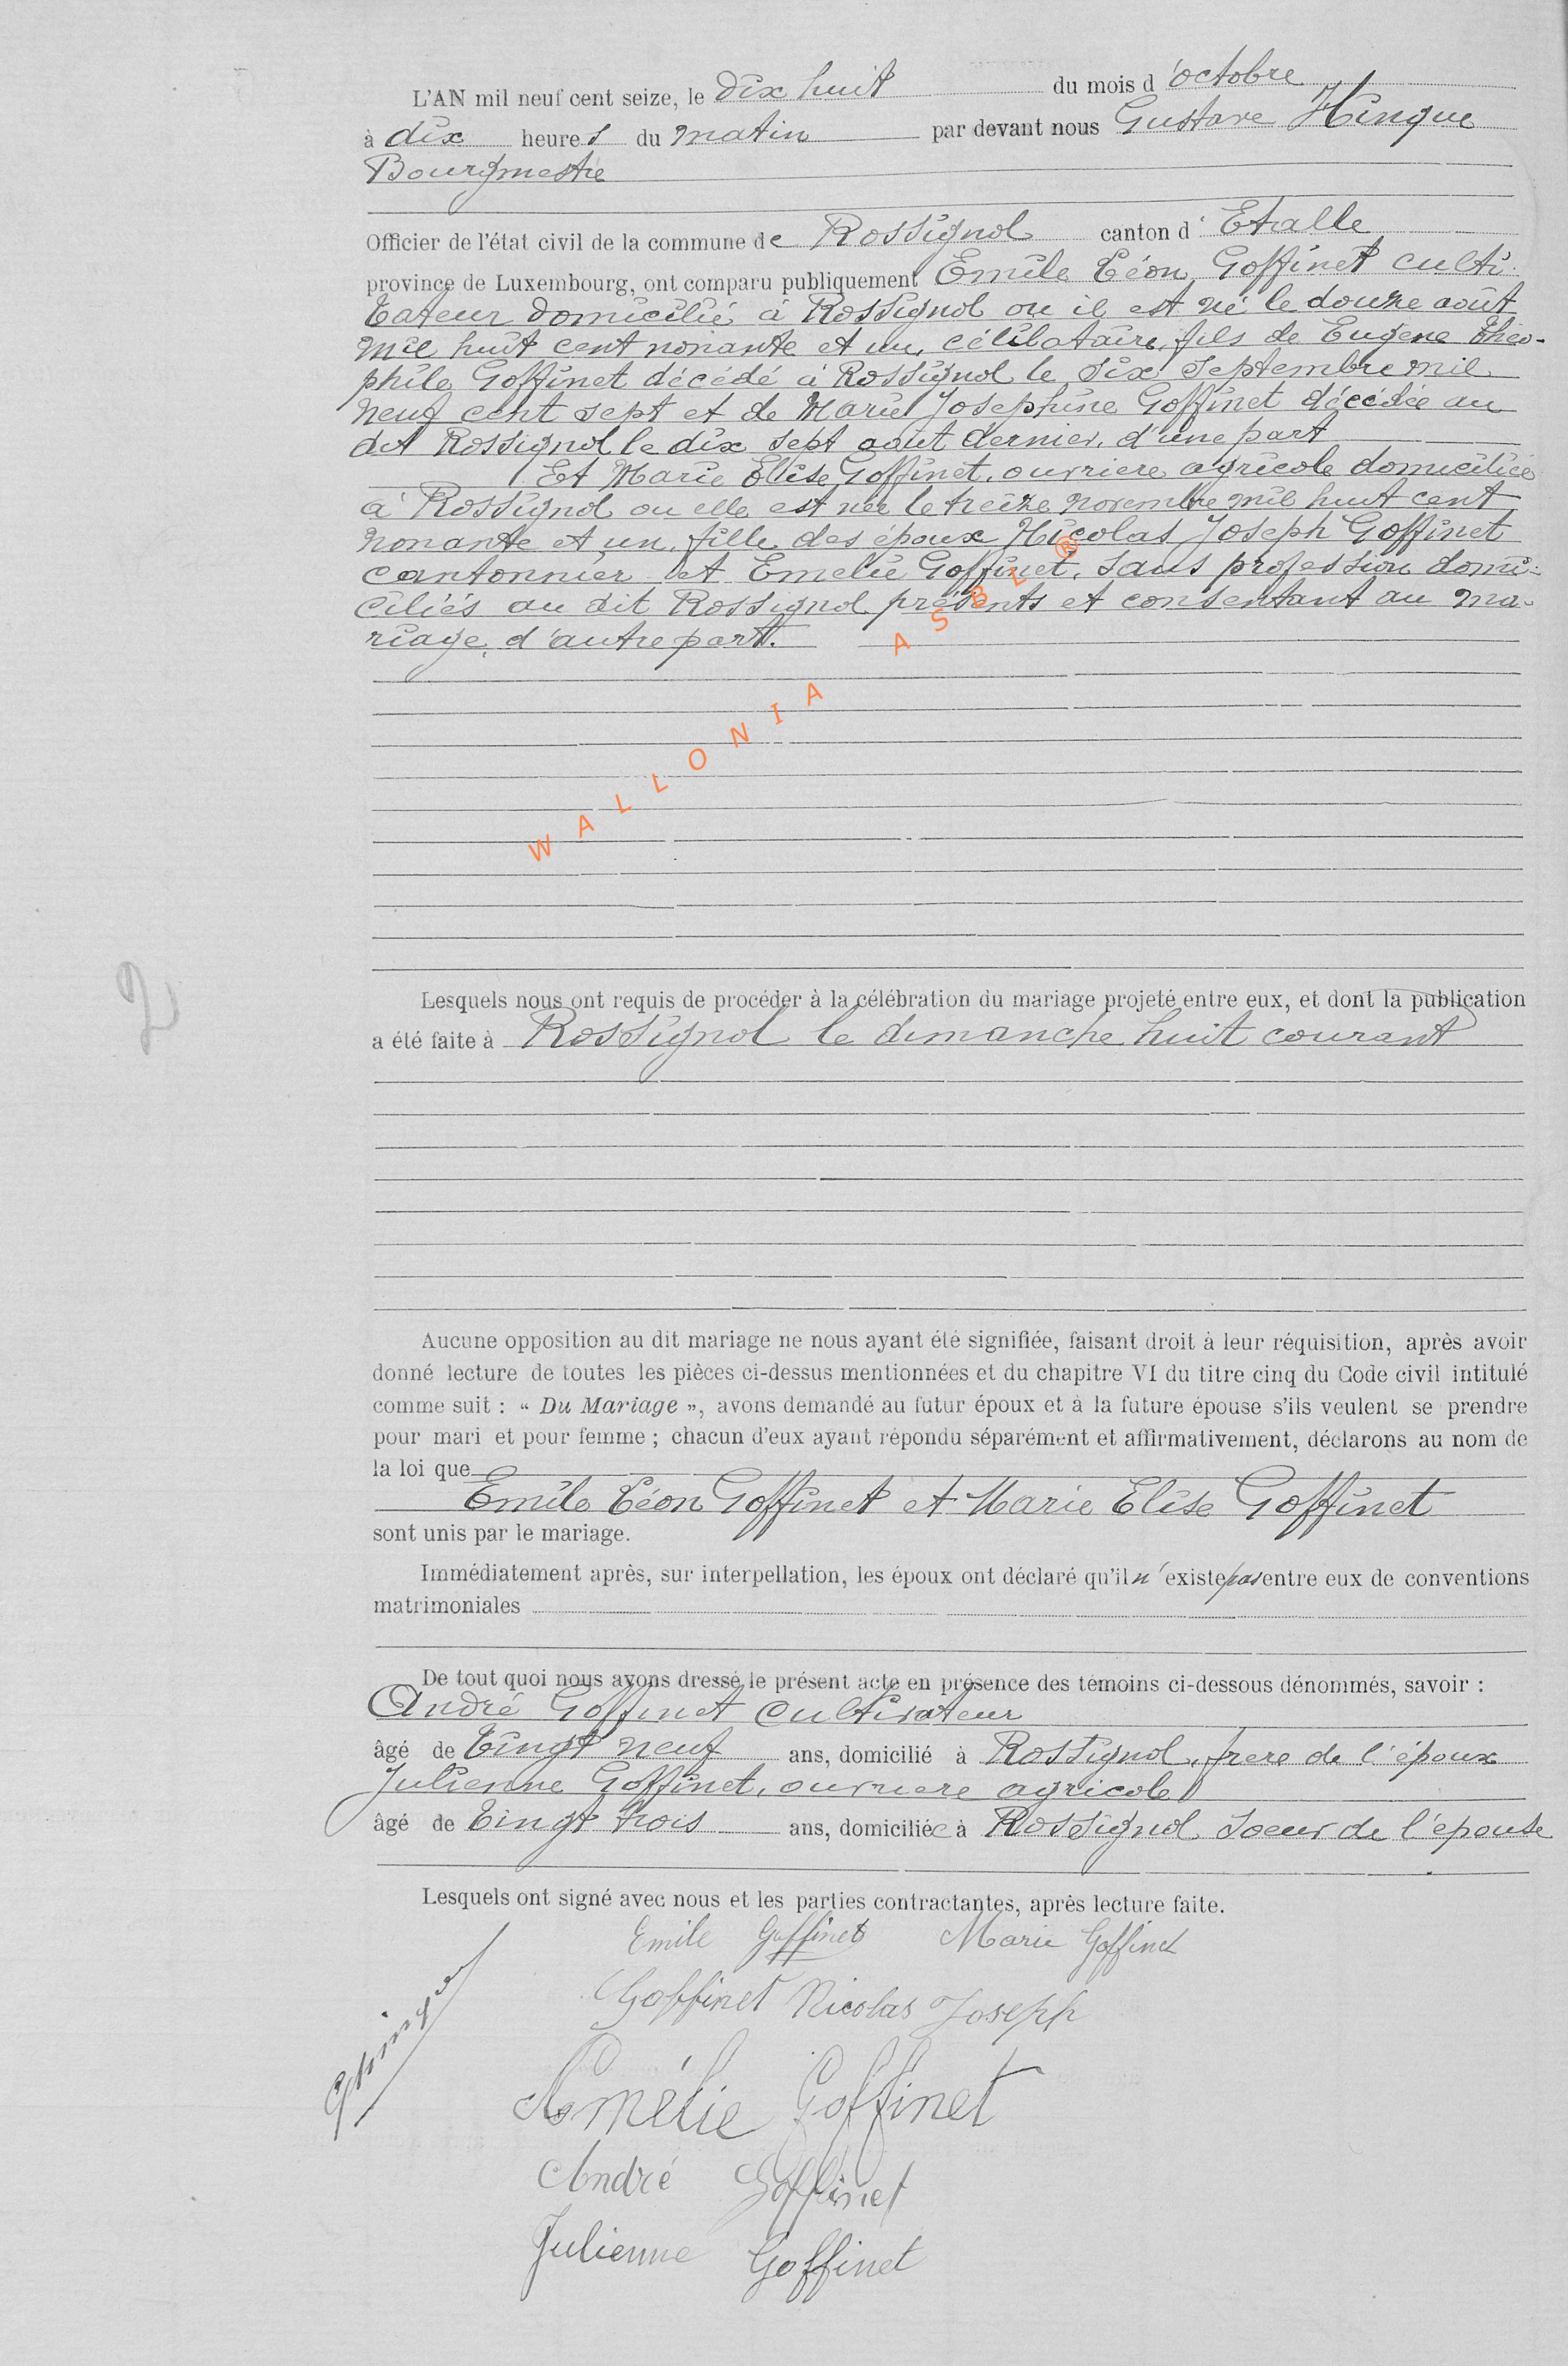 L'AN mil neuf cent seize, le dix huit du mois d'octobre
à dix heures du matin par devant nous Gustave Hinque
Bourgmestre
Officier de l'état civil de la commune de Rossignol canton d'Etalle
province de Luxembourg, ont comparu publiquement Emile Léon Goffinet culti-
vateur domicilié à Rossignol ou il est né le douze août
mil huit cent nonante et un, célibataire, fils de Eugene Théo-
phile Goffinet décédé à Rossignol le six Septembre mil
neuf cent sept et de Marie Josephine Goffinet décédée au
dit Rossignol le dix sept août dernier, d'une part
Et Marie Elise Goffinet, ouvriere agricole domiciliée
à Rossignol ou elle est née le treize novembre mil huit cent
nonante et un, fille des époux Nicolas Joseph Goffinet
cantonnier et Emelie Goffinet, sans profession domi-
ciliés au dit Rossignol présents et consentant au ma-
riage, d'autre part.
WALLONIA ASBL ®
2
Lesquels nous ont requis de procéder à la célébration du mariage projeté entre eux, et dont la publication
a été faite à Rossignol le dimanche huit courant
Aucune opposition au dit mariage ne nous ayant été signifiée, faisant droit à leur réquisition, après avoir
donné lecture de toutes les pièces ci-dessus mentionnées et du chapitre VI du titre cinq du Code civil intitulé
comme suit : « Du Mariage », avons demandé au futur époux et à la future épouse s'ils veulent se prendre
pour mari et pour femme ; chacun d'eux ayant répondu séparément et affirmativement, déclarons au nom de
la loi que
Emile Léon Goffinet et Marie Elise Goffinet
sont unis par le mariage.
Immédiatement après, sur interpellation, les époux ont déclaré qu'il n'existe pas entre eux de conventions
matrimoniales
De tout quoi nous avons dressé le présent acte en présence des témoins ci-dessous dénommés, savoir :
André Goffinet cultivateur
âgé de vingt neuf ans, domicilié à Rossignol, frere de l'époux
Julienne Goffinet, ouvriere agricole
âgé de vingt trois ans, domiciliée à Rossignol soeur de l'epouse
Lesquels ont signé avec nous et les parties contractantes, après lecture faite.
Emile Goffinet Marie Goffinet
Goffinet Nicolas Joseph
Amélie Goffinet
André Goffinet
Julienne Goffinet